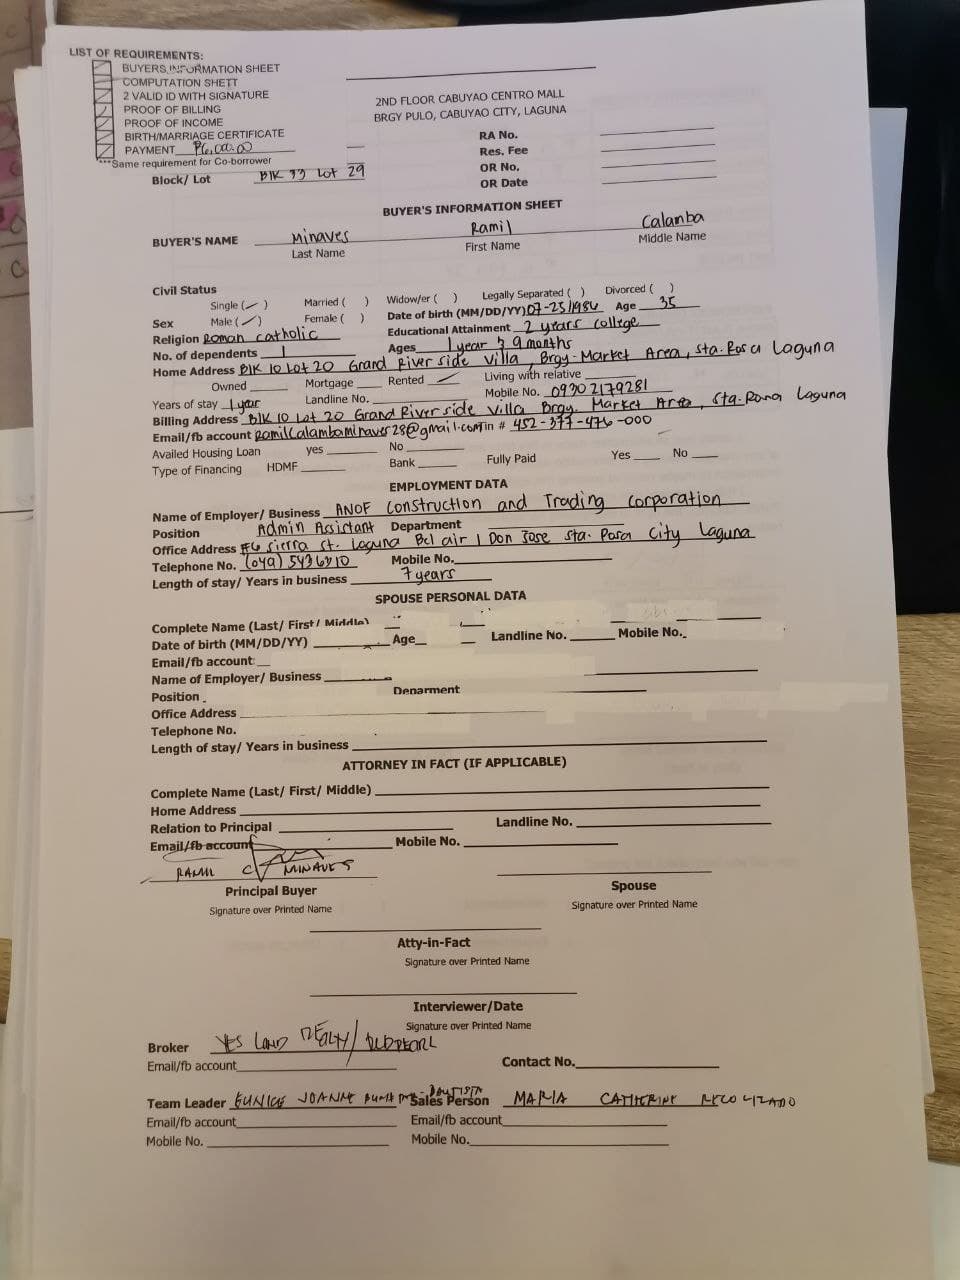 LIST OF REQUIREMENTS:
BUYERS INFORMATION SHEET
COMPUTATION SHETT
2 VALID ID WITH SIGNATURE
PROOF OF BILLING
PROOF OF INCOME
BIRTH/MARRIAGE CERTIFICATE
PAYMENT
***Same requirement for Co-borrower
Block/ Lot Blk 33 Lot 29
2ND FLOOR CABUYAO CENTRO MALL
BRGY PULO, CABUYAO CITY, LAGUNA
RA No.
Res. Fee
OR No.
OR Date
BUYER'S INFORMATION SHEET
BUYER'S NAME Minaves Ramil Calamba
Last Name First Name Middle Name
Civil Status
Single ( ) Married ( ) Widow/er ( ) Legally Separated ( ) Divorced ( )
Sex Male ( ) Female ( ) Date of birth (MM/DD/YY) Age 35
Religion Roman catholic Educational Attainment 2 years college
No. of dependents 1 Ages 1 year 3 9 months
Home Address Blk 10 Lot 20 Grand River side Villa, Brgy. Market Area, Sta. Rosa Laguna
Owned Mortgage Rented Living with relative
Years of stay 1 year Landline No. Mobile No. 09302179281
Billing Address Blk 10 Lot 20 Grand River side Villa Brgy. Market Area, Sta. Rosa Laguna
Email/fb account Tin # 452-377-476-000
Availed Housing Loan yes No
Type of Financing HDMF Bank Fully Paid Yes No
EMPLOYMENT DATA
Name of Employer/ Business ANOF Construction and Trading Corporation
Position Admin Assistant Department
Office Address Sierra St. Laguna Bel air 1 Don Jose Sta. Rosa City Laguna
Telephone No. (049) 5436310 Mobile No.
Length of stay/ Years in business 7 years
SPOUSE PERSONAL DATA
Complete Name (Last/ First/ Middle)
Date of birth (MM/DD/YY) Age Landline No. Mobile No.
Email/fb account
Name of Employer/ Business
Position Department
Office Address
Telephone No.
Length of stay/ Years in business
ATTORNEY IN FACT (IF APPLICABLE)
Complete Name (Last/ First/ Middle)
Home Address
Relation to Principal Landline No.
Email/fb account Mobile No.
RAMIL C MINAVES
Principal Buyer Spouse
Signature over Printed Name Signature over Printed Name
Atty-in-Fact
Signature over Printed Name
Interviewer/Date
Signature over Printed Name
Broker YES LAND REALTY/
Email/fb account Contact No.
Team Leader EUNICE JOANNE BAUTISTA Sales Person MARIA CATHERINE RECOLIZADO
Email/fb account Email/fb account
Mobile No. Mobile No.